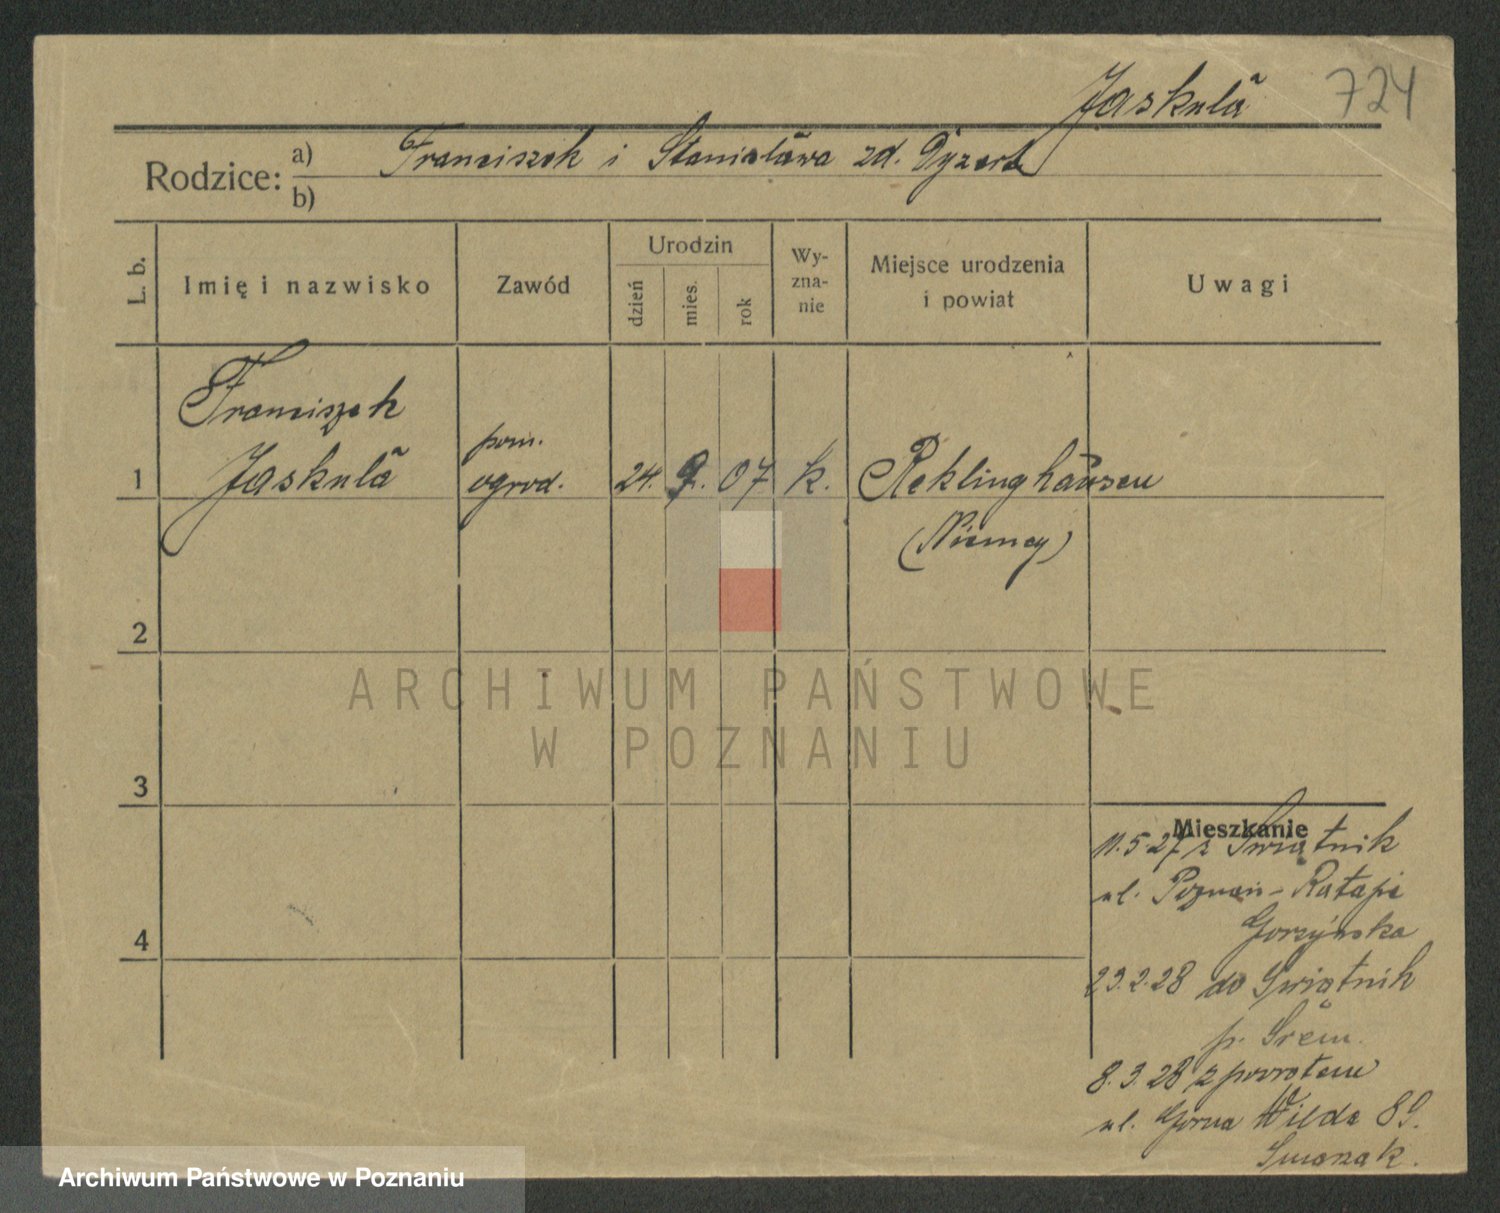 Jaskuła 724
Rodzice: a) Franciszek i Stanisława zd. Dyzert
b)
L. b. Imię i nazwisko Zawód Urodzin dzień mies. rok Wy-zna-nie Miejsce urodzenia i powiat Uwagi
Franciszek
pom.
1 Jaskuła ogrod. 24. 9. 07 k. Reklinghausen
(Niemcy)
2
ARCHIWUM PAŃSTWOWE
W POZNANIU
3
4
Mieszkanie
11.5.27 z Świątnik
ul. Poznań-Rataje
Gorzyńska
23.2.28 do Świątnik
p. Śrem.
8.3.28 z powrotem
ul. Górna Wilda 89.
Smorzak.
Archiwum Państwowe w Poznaniu